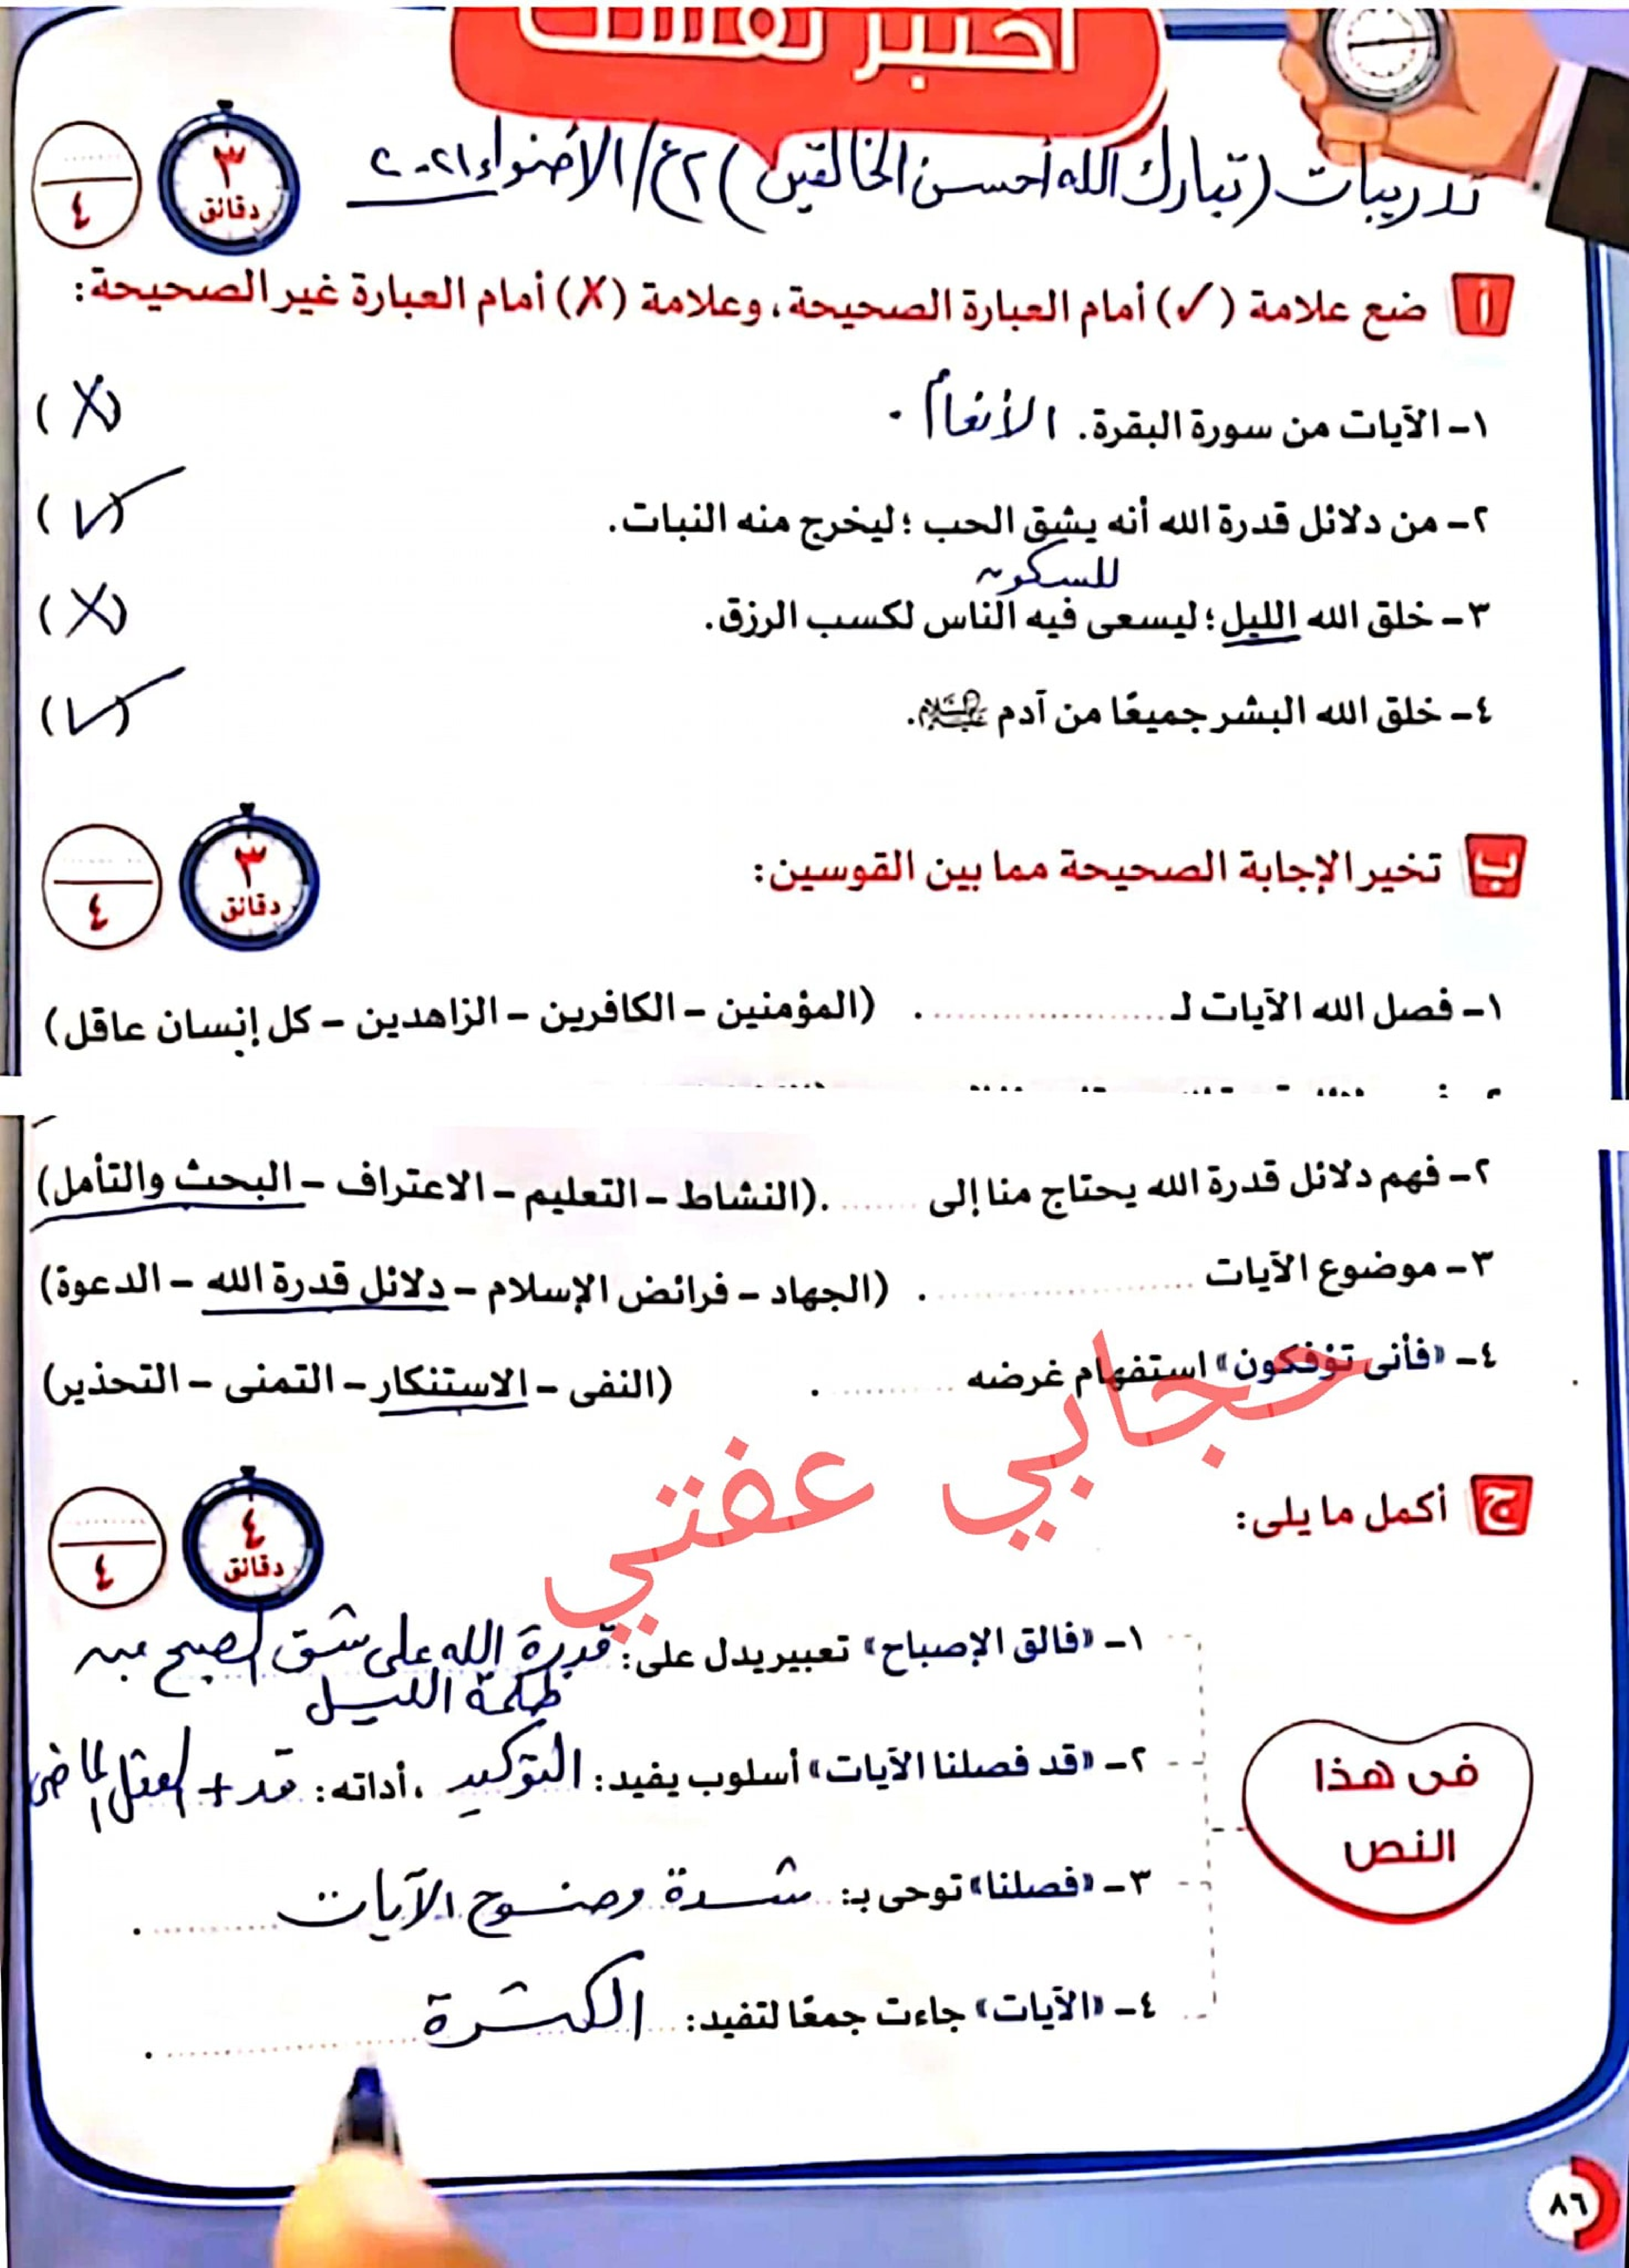 اختبر نفسك
تدريبات (تبارك الله أحسن الخالقين) ٢ع/ الأضواء ٢٠٢١
٣
دقائق
٤
أ ضع علامة (✓) أمام العبارة الصحيحة، وعلامة (X) أمام العبارة غير الصحيحة:
١- الآيات من سورة البقرة. الأنعام. (X)
٢- من دلائل قدرة الله أنه يشق الحب؛ ليخرج منه النبات. (✓)
للسكون
٣- خلق الله الليل؛ ليسعى فيه الناس لكسب الرزق. (X)
٤- خلق الله البشر جميعًا من آدم عليه السلام. (✓)
ب تخير الإجابة الصحيحة مما بين القوسين:
٣
دقائق
٤
١- فصل الله الآيات لـ .................... . (المؤمنين - الكافرين - الزاهدين - كل إنسان عاقل)
٢- فهم دلائل قدرة الله يحتاج منا إلى ....... .(النشاط - التعليم - الاعتراف - البحث والتأمل)
٣- موضوع الآيات .................... . (الجهاد - فرائض الإسلام - دلائل قدرة الله - الدعوة)
٤- «فأنى تؤفكون» استفهام غرضه .......... . (النفى - الاستنكار - التمنى - التحذير)
حجابي عفتي
ج أكمل ما يلى:
٤
دقائق
٤
فى هذا
النص
١- «فالق الإصباح» تعبير يدل على: قدرة الله على شق الصبح من
ظلمة الليل
٢- «قد فصلنا الآيات» أسلوب يفيد: التوكيد، أداته: قد + الفعل الماضى
٣- «فصلنا» توحى بـ: شدة وضوح الآيات .
٤- «الآيات» جاءت جمعًا لتفيد: الكثرة .
٨٦